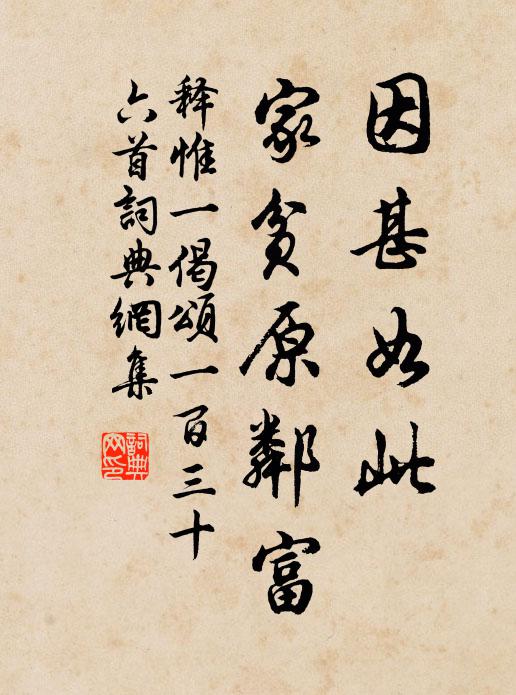 因甚如此
家贫原鄰富
释惟一偈頌一百三十
六首詞典網集
詞典网印